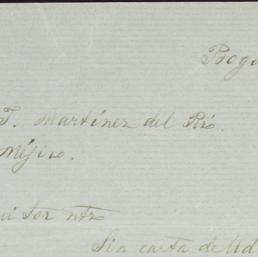 Bogo
T. Martínez del Río.
Méjico.
ui Sor ntro
Sin carta de Ud